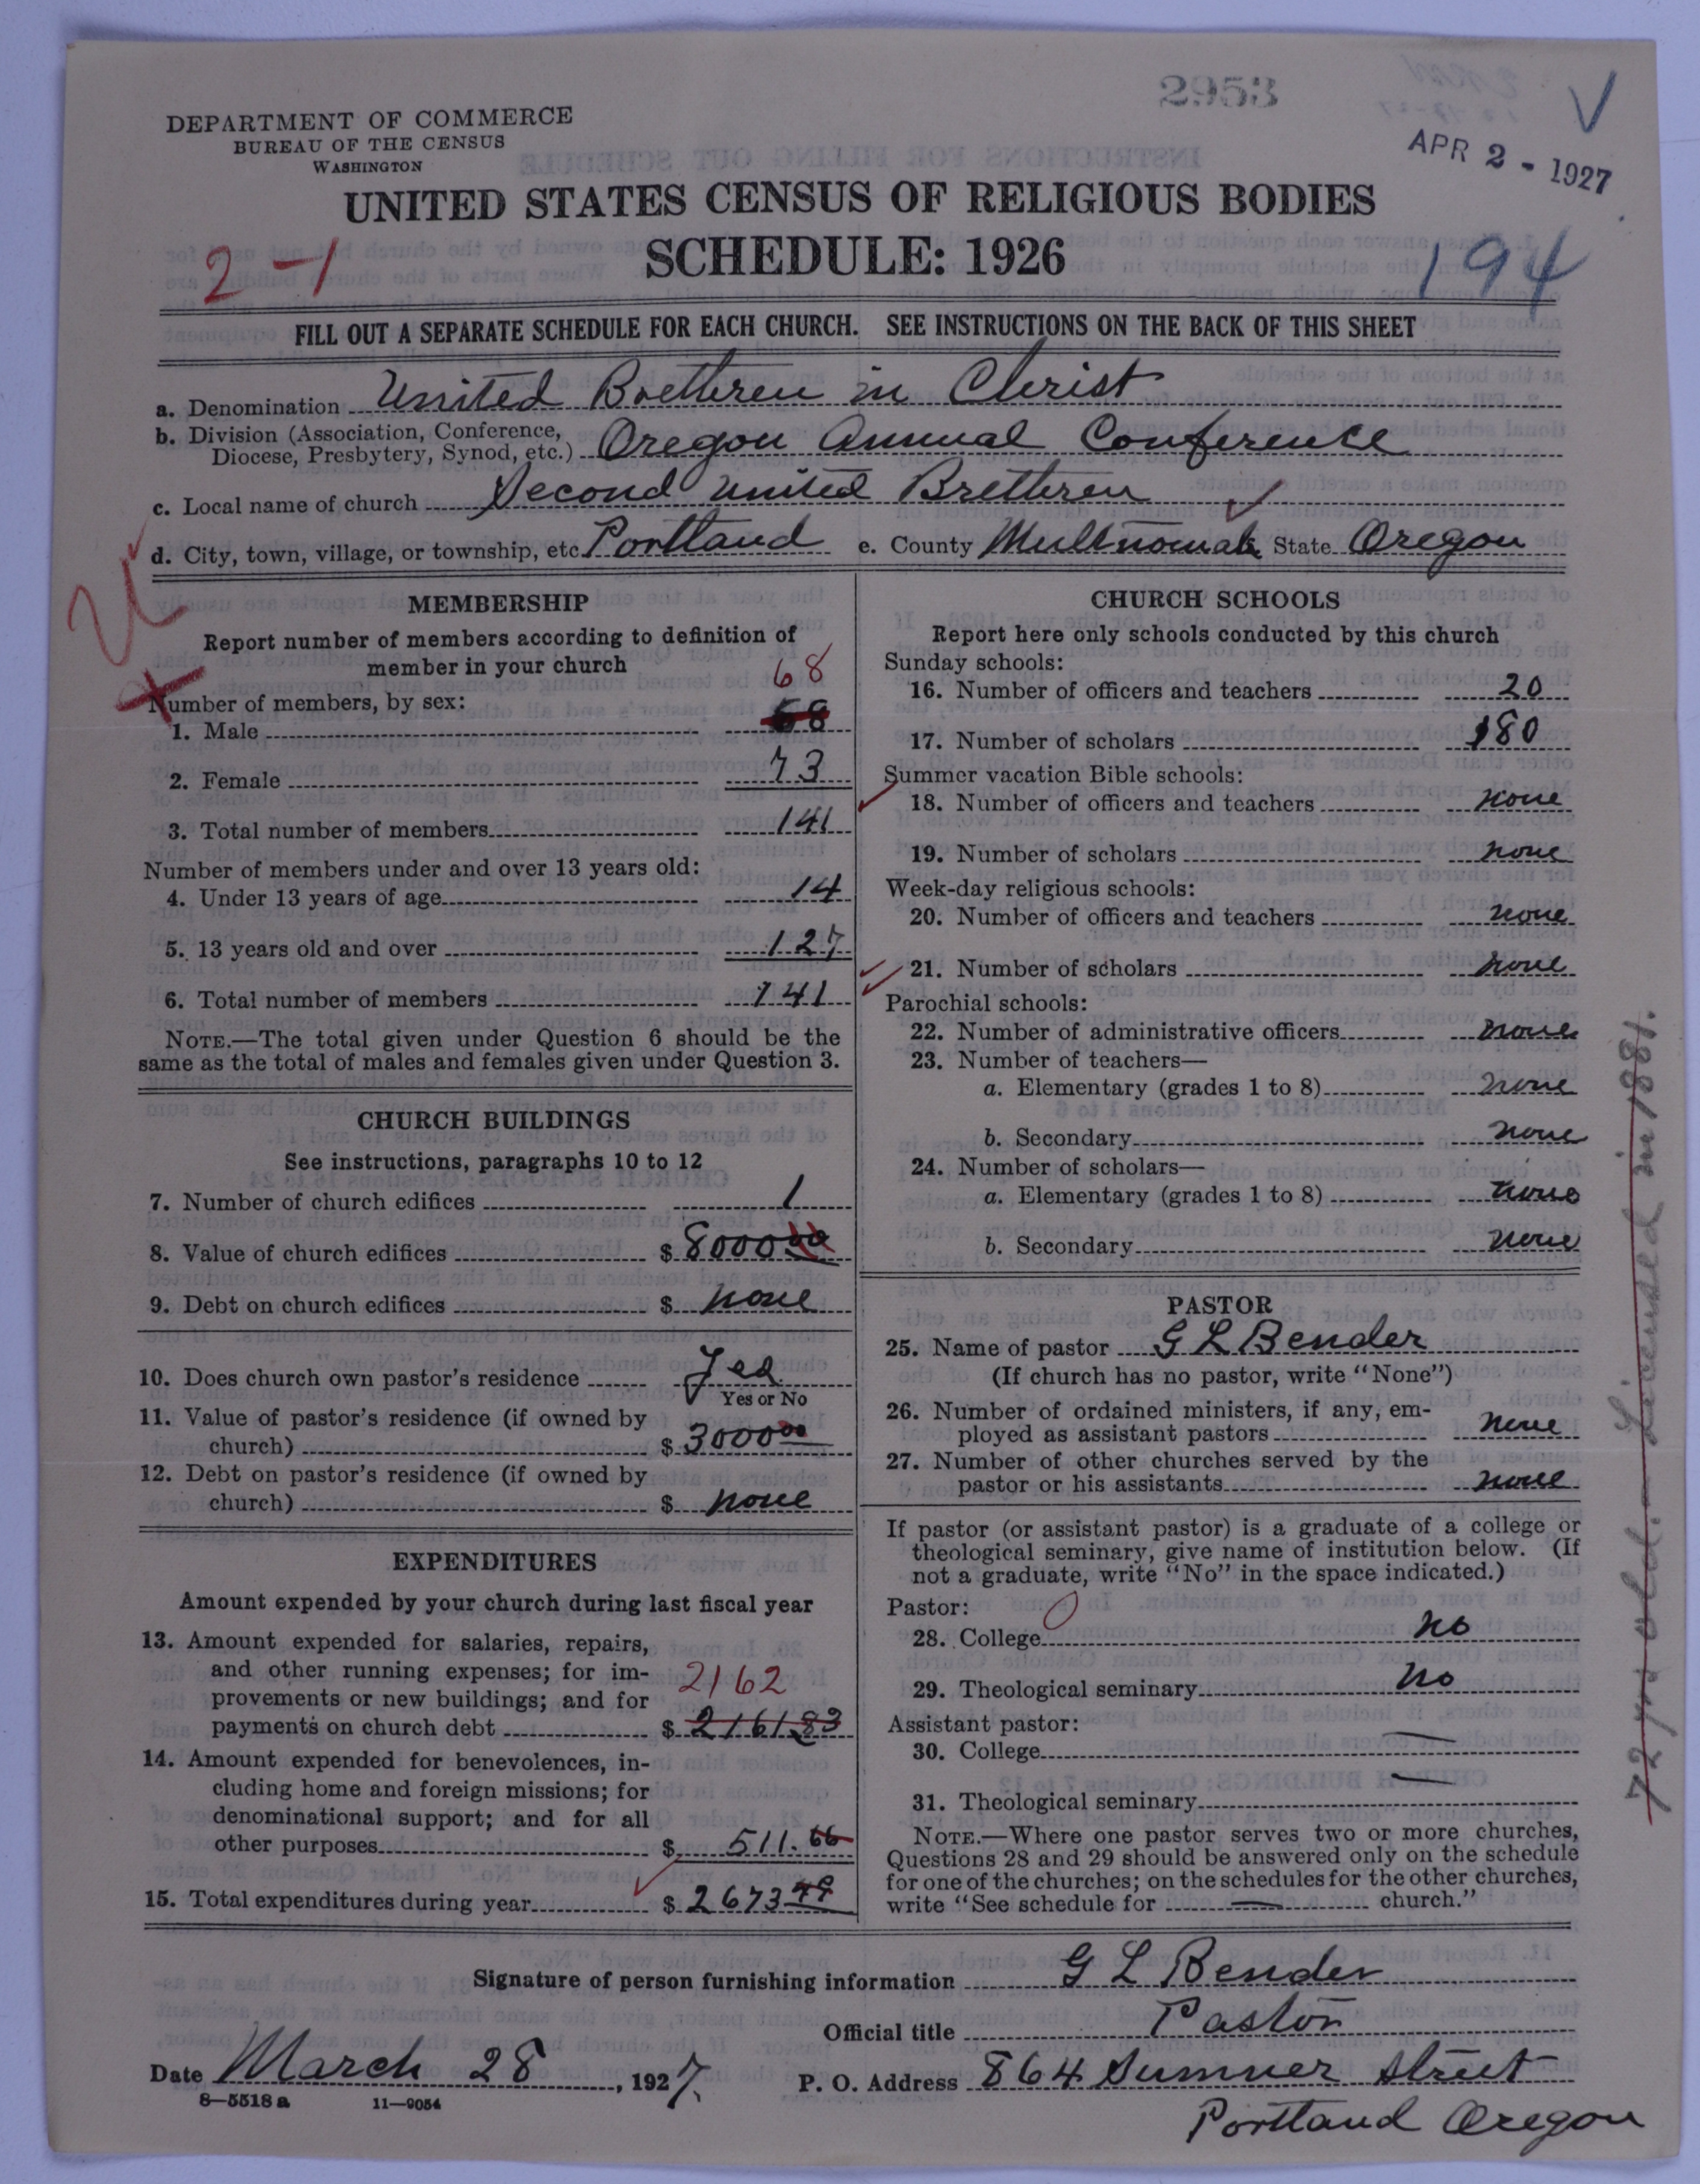 2953
APR 2 - 1927
DEPARTMENT OF COMMERCE
BUREAU OF THE CENSUS
WASHINGTON
UNITED STATES CENSUS OF RELIGIOUS BODIES
SCHEDULE: 1926
2-1
194
FILL OUT A SEPARATE SCHEDULE FOR EACH CHURCH. SEE INSTRUCTIONS ON THE BACK OF THIS SHEET
a. Denomination United Brethren in Christ
b. Division (Association, Conference, Diocese, Presbytery, Synod, etc.) Oregon Annual Conference
c. Local name of church Second United Brethren
d. City, town, village, or township, etc. Portland e. County Multnomah State Oregon
MEMBERSHIP
Report number of members according to definition of
member in your church
68
Number of members, by sex:
1. Male 68
2. Female 73
3. Total number of members 141
Number of members under and over 13 years old:
4. Under 13 years of age 14
5. 13 years old and over 127
6. Total number of members 141
NOTE.—The total given under Question 6 should be the
same as the total of males and females given under Question 3.
CHURCH BUILDINGS
See instructions, paragraphs 10 to 12
7. Number of church edifices 1
8. Value of church edifices $ 8000 00
9. Debt on church edifices $ none
10. Does church own pastor's residence Yes
Yes or No
11. Value of pastor's residence (if owned by
church) $ 3000 00
12. Debt on pastor's residence (if owned by
church) $ none
EXPENDITURES
Amount expended by your church during last fiscal year
13. Amount expended for salaries, repairs,
and other running expenses; for im-
provements or new buildings; and for
2162
payments on church debt $ 2161.83
14. Amount expended for benevolences, in-
cluding home and foreign missions; for
denominational support; and for all
other purposes $ 511.66
15. Total expenditures during year $ 2673 49
CHURCH SCHOOLS
Report here only schools conducted by this church
Sunday schools:
16. Number of officers and teachers 20
17. Number of scholars 180
Summer vacation Bible schools:
18. Number of officers and teachers none
19. Number of scholars none
Week-day religious schools:
20. Number of officers and teachers none
21. Number of scholars none
Parochial schools:
22. Number of administrative officers none
23. Number of teachers—
a. Elementary (grades 1 to 8) none
b. Secondary none
24. Number of scholars—
a. Elementary (grades 1 to 8) none
b. Secondary none
PASTOR
25. Name of pastor G L Bender
(If church has no pastor, write "None")
26. Number of ordained ministers, if any, em-
ployed as assistant pastors none
27. Number of other churches served by the
pastor or his assistants none
If pastor (or assistant pastor) is a graduate of a college or
theological seminary, give name of institution below. (If
not a graduate, write "No" in the space indicated.)
Pastor:
28. College no
29. Theological seminary no
Assistant pastor:
30. College —
31. Theological seminary —
NOTE.—Where one pastor serves two or more churches,
Questions 28 and 29 should be answered only on the schedule
for one of the churches; on the schedules for the other churches,
write "See schedule for — church."
72 yrs old. - Licensed in 1881.
Signature of person furnishing information G L Bender
Official title Pastor
Date March 28, 1927. P. O. Address 864 Sumner Street
8—5518 a 11—9054
Portland Oregon